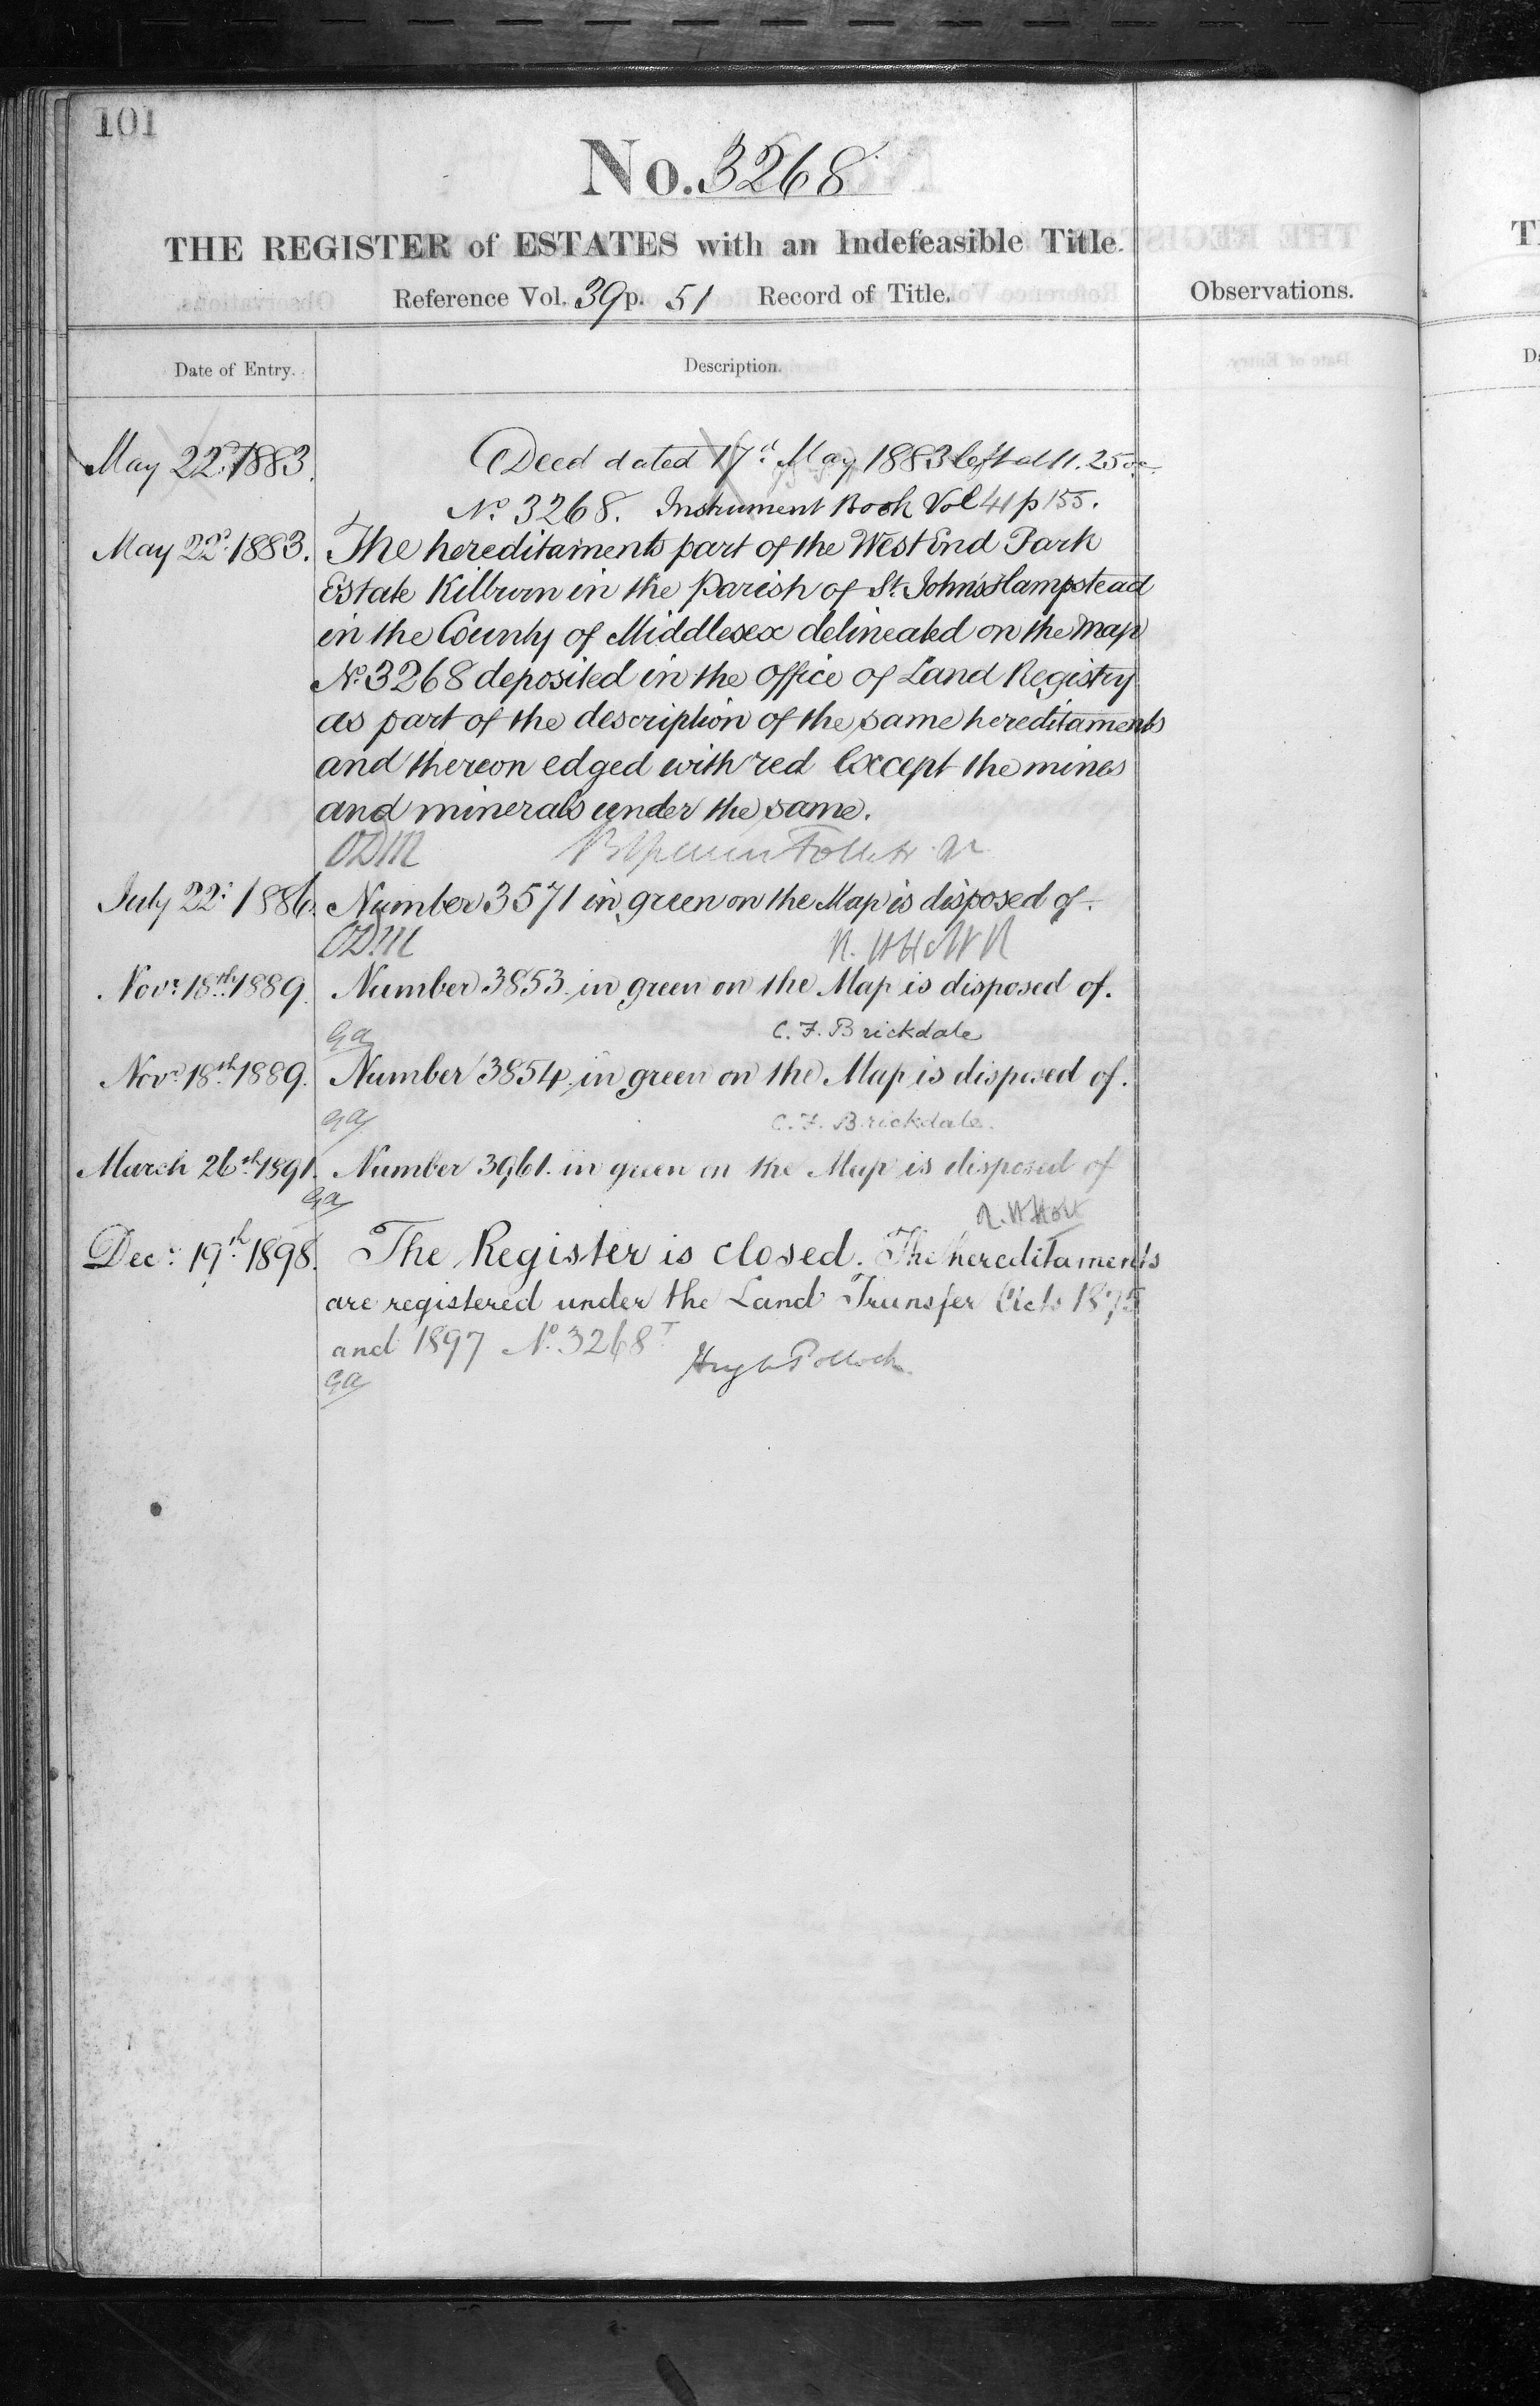 101
No. 3268
THE REGISTER of ESTATES with an Indefeasible Title.
Reference Vol. 39 p. 51 Record of Title.
Observations.
Date of Entry.
Description.
May 22d. 1883. Deed dated 17th May 1883 left at 11.25
No 3268. Instrument Book Vol 41 p 155.
May 22d. 1883. The hereditaments part of the West End Park
Estate Kilburn in the Parish of St. Johns Hampstead
in the County of Middlesex delineated on the Map
No. 3268 deposited in the Office of Land Registry
as part of the description of the same hereditaments
and thereon edged with red Except the mines
and minerals under the same.
ODM
July 22d. 1886. Number 3571 in green on the Map is disposed of.
ODM R. H Holt R
Novr. 18th. 1889. Number 3853 in green on the Map is disposed of.
GA C. F. Brickdale
Novr. 18th. 1889. Number 3854 in green on the Map is disposed of.
GA C. F. Brickdale.
March 26th. 1891. Number 3961. in green on the Map is disposed of
GA R. H Holt
Decr. 19th. 1898. The Register is closed. The hereditaments
are registered under the Land Transfer Acts 1875
and 1897 No. 3268T
GA Hugh Pollock